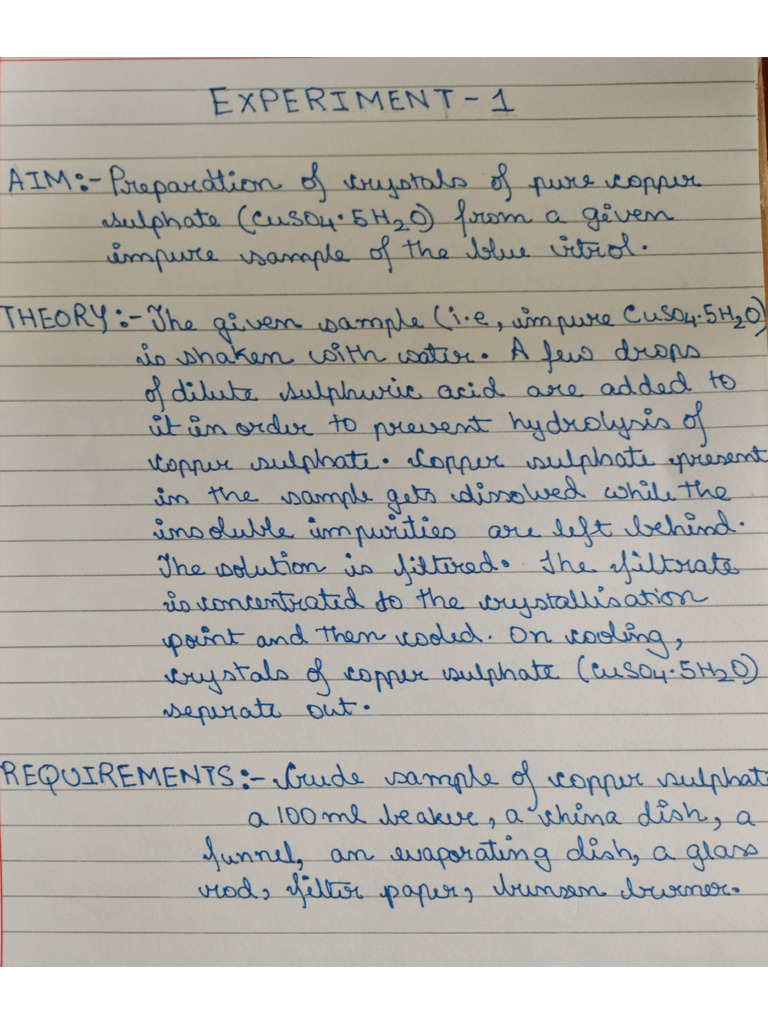 EXPERIMENT - 1
AIM:- Preparation of crystals of pure copper
sulphate (CuSO4.5H2O) from a given
impure sample of the blue vitrol.
THEORY:- The given sample (i.e, impure CuSO4.5H2O)
is shaken with water. A few drops
of dilute sulphuric acid are added to
it in order to prevent hydrolysis of
copper sulphate. Copper sulphate present
in the sample gets dissolved while the
insoluble impurities are left behind.
The solution is filtered. The filtrate
is concentrated to the crystallisation
point and then cooled. On cooling,
crystals of copper sulphate (CuSO4.5H2O)
seperate out.
REQUIREMENTS:- Crude sample of copper sulphate
a 100ml beaker, a china dish, a
funnel, an evaporating dish, a glass
rod, filter paper, bunsen burner.